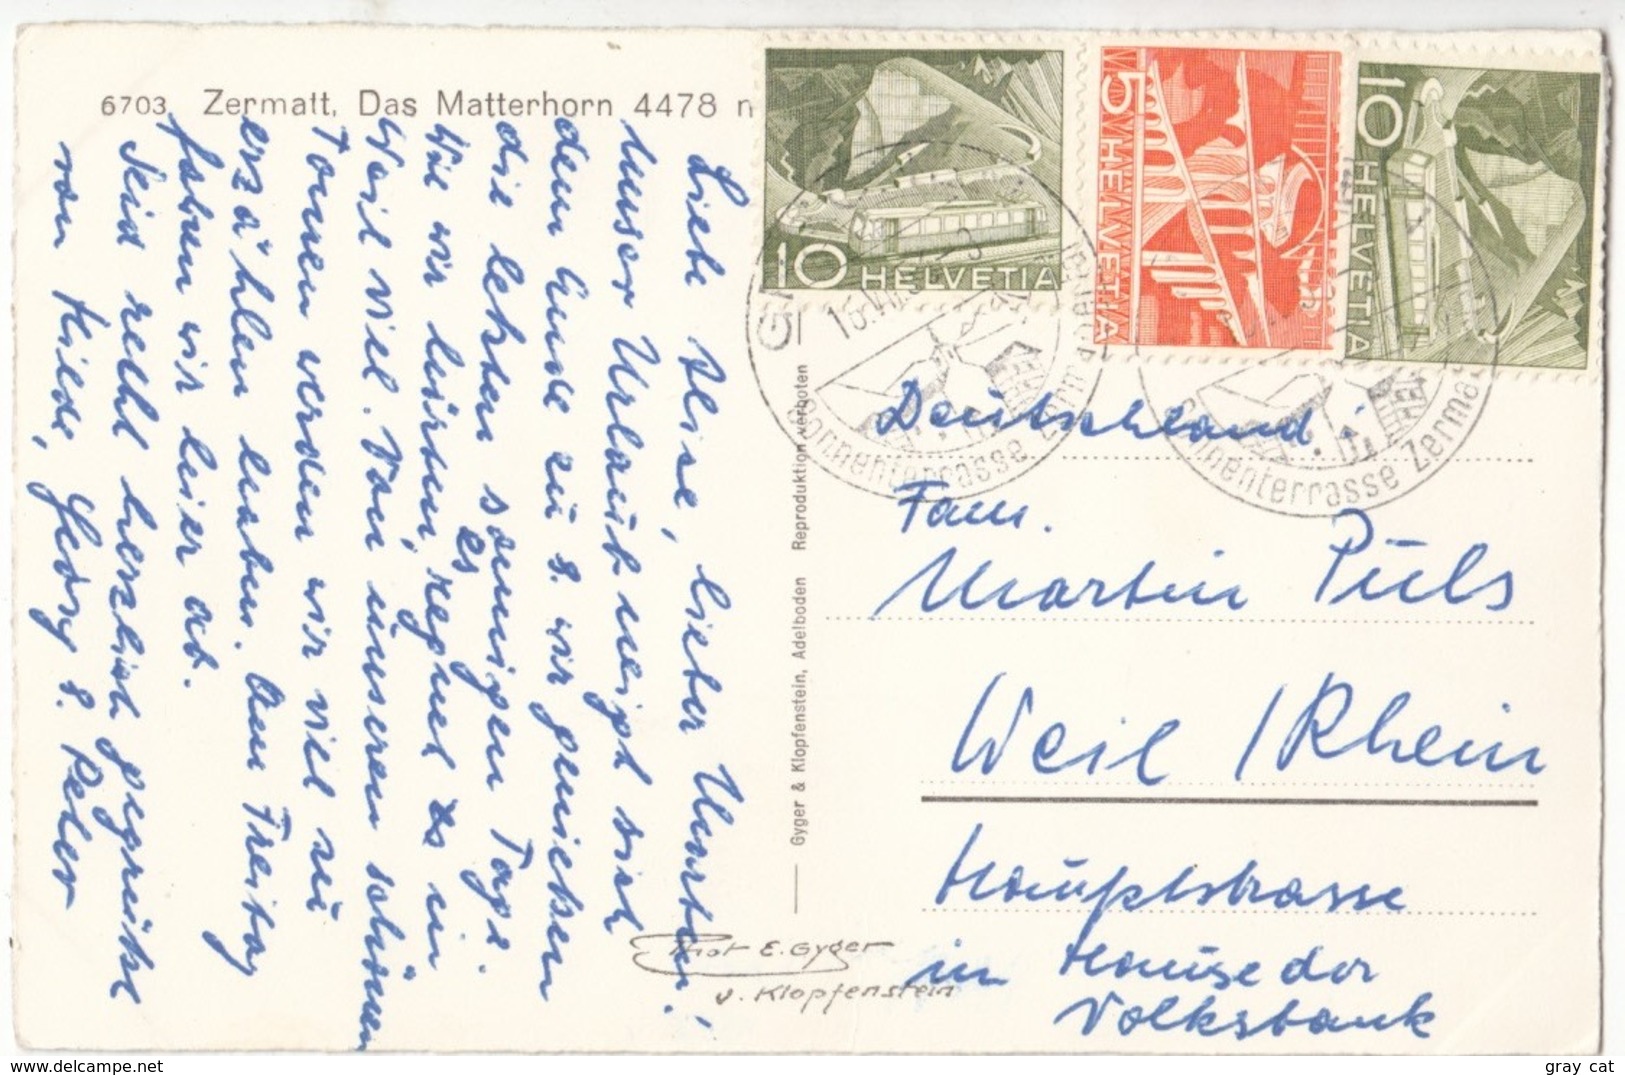 6703. Zermatt, Das Matterhorn 4478 m
10 HELVETIA
5 HELVETIA
10 HELVETIA
Sonnenterrasse Zermatt
Sonnenterrasse Zermatt
Liebe Alise, lieber Martin!
Unser Urlaub neigt sich
dem Ende zu u. wir genießen
die letzten sonnigen Tage.
Wie wir hören, regnet es in
es
Weil viel. Von unseren schönen
Touren werden wir viel zu
erzählen haben. Am Freitag
fahren wir hier ab.
Seid recht herzlich gegrüßt
von Hilde, Georg u. Peter
Gyger & Klopfenstein, Adelboden Reproduktion verboten
Phot E. Gyger
u. Klopfenstein
Deutschland
Fam.
Martin Puls
Weil /Rhein
Hauptstrasse
im Hause der
Volksbank
gray cat
delcampe.net